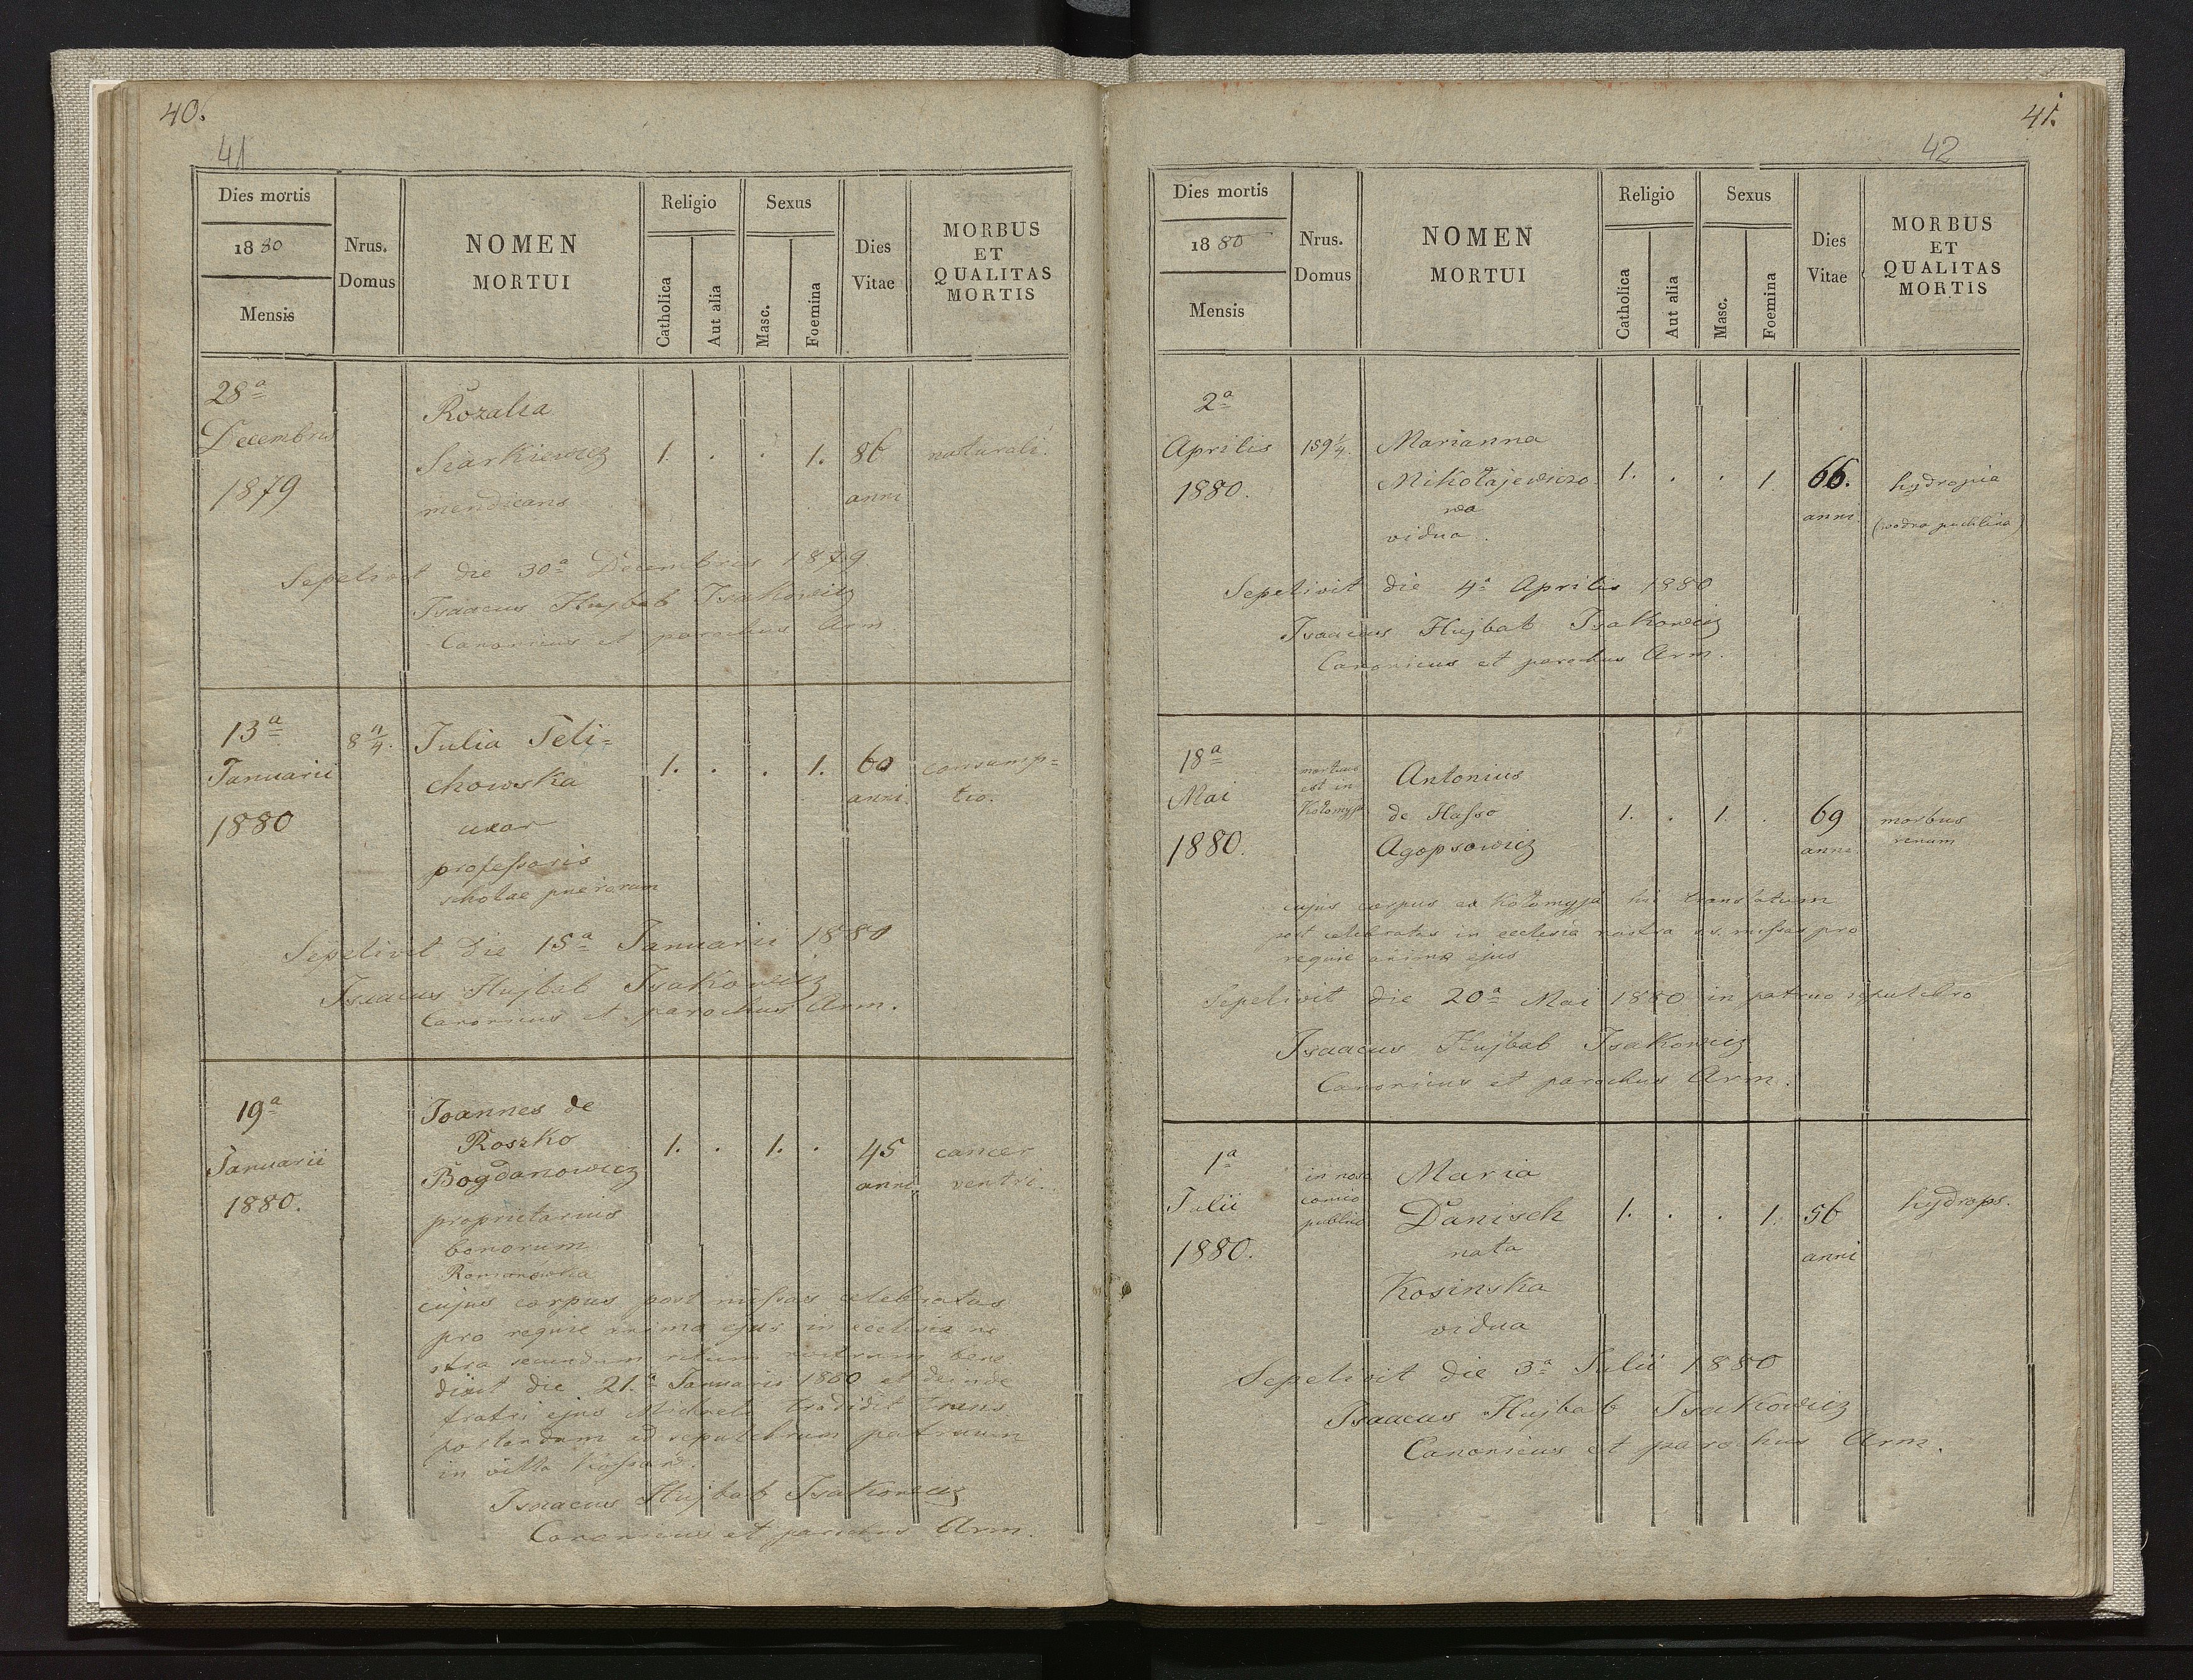 40.
41
Dies mortis
1880
Mensis
Nrus.
Domus
NOMEN
MORTUI
Religio
Catholica
Aut alia
Sexus
Masc.
Foemina
Dies
Vitae
MORBUS
ET
QUALITAS
MORTIS
28ª
Decembris
1879
Rozalia
Szarkiewicz
mendicans
1. . . 1.
86
anni
naturali.
Sepelivit die 30ª Decembris 1879
Isaacus Hujbab Isakowicz
Canonicus et parochus Arm.
13ª
Januarii
1880
8 /4.
Julia Teli=
chowska
uxor
professoris
scholae puerorum
1. . . 1.
60
anni.
consump=
tio.
Sepelivit die 15ª Januarii 1880
Isaacus Hujbab Isakowicz
Canonicus et parochus Arm.
19ª
Januarii
1880.
Joannes de
Roszko
Bogdanowicz
proprietarius
bonorum
Romanówka
1. . 1. .
45
anni
cancer
ventri.
cujus corpus post missas celebratas
pro requie anima ejus in ecclesia no
stra secundum ritum nostrum bene
dixit die 21.ª Januarii 1880 et deinde
fratri ejus Michaeli tradidit trans
portandum ad sepulchrum patruum
in villa
Isaacus Hujbab Isakowicz
Canonicus et parochus Arm.
41.
42
Dies mortis
1880
Mensis
Nrus.
Domus
NOMEN
MORTUI
Religio
Catholica
Aut alia
Sexus
Masc.
Foemina
Dies
Vitae
MORBUS
ET
QUALITAS
MORTIS
2ª
Aprilis
1880.
159 1/4.
Marianna
Mikołajewiczo
wa
vidua.
1. . . 1.
66.
anni.
hydropia
(wodna puchlina)
Sepelivit die 4ª Aprilis 1880
Isaacus Hujbab Isakowicz
Canonicus et parochus Arm.
18ª
Mai
1880.
mortuus
est in
Kołomyja
Antonius
de Hasso
Agopsowicz
1. . 1. .
69
anni
morbus
renum
cujus corpus ex Kołomyja huc translatum
post celebratas in ecclesia nostra s.s. missas pro
requie anima ejus
Sepelivit die 20ª Mai 1880 in patruo sepulchro
Isaacus Hujbab Isakowicz
Canonicus et parochus Arm.
1ª
Julii
1880.
in noso
comio
publico
Maria
Danisch
nata
Kosinska
vidua
1. . . 1.
56
anni
hydrops.
Sepelivit die 3ª Julii 1880
Isaacus Hujbab Isakowicz
Canonicus et parochus Arm.